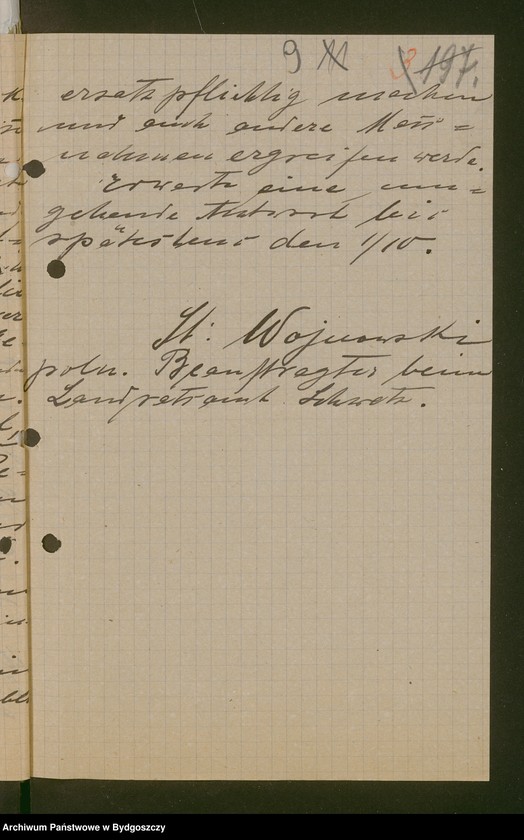 9
3 197.
ersatzpflichtig machen
und auch andere Mass=
nahmen ergreifen werde.
Erwarte eine um=
gehende Antwort bis
spätestens den 1/10.
St. Wojnowski
poln. Beauftragter beim
Landratsamt Schwetz.
Archiwum Państwowe w Bydgoszczy